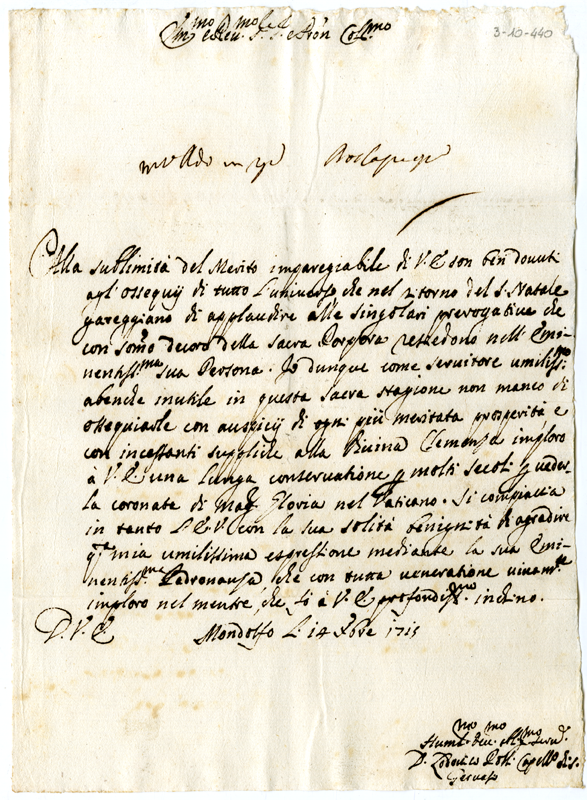 3-10-440
Em.mo e Rev.mo S.r S.r e Pron Col.mo
Alla sublimità del Merito impareggiabile di V.E. son ben douuti
agl'ossequij di tutto l'uniuerso che nel ritorno del S. Natale
gareggiano di applaudire alle singolari prerogatiue che
con som̃o decoro della Sacra Porpora resiedono nell'Emi-
nentiss.ma sua Persona. Io dunque come seruitore umiliss.mo
abenche inutile in questa sacra stagione non manco di
ossequiarle con auspicij di ogni più meritata prosperità e
con incessanti suppliche alla Diuina Clemenza imploro
à V.E. una lunga conseruatione p molti secoli p ueder
la coronata di mag.r Gloria nel Vaticano. Si compiaccia
in tanto L'E.V. con la sua solita benignità di agradire
q.ta mia umilissima espressione mediante la sua Emi-
nentiss.ma Padronanza che con tutta ueneratione uiuam.te
imploro nel mentre che fò à V.E. profondiss.mo inchino.
D.V.E. Mondolfo Li 14 Xbre 1715
Humil.mo deu.mo obl.mo seru.r
D. Lodouico Capell.o di S.
Geruaso